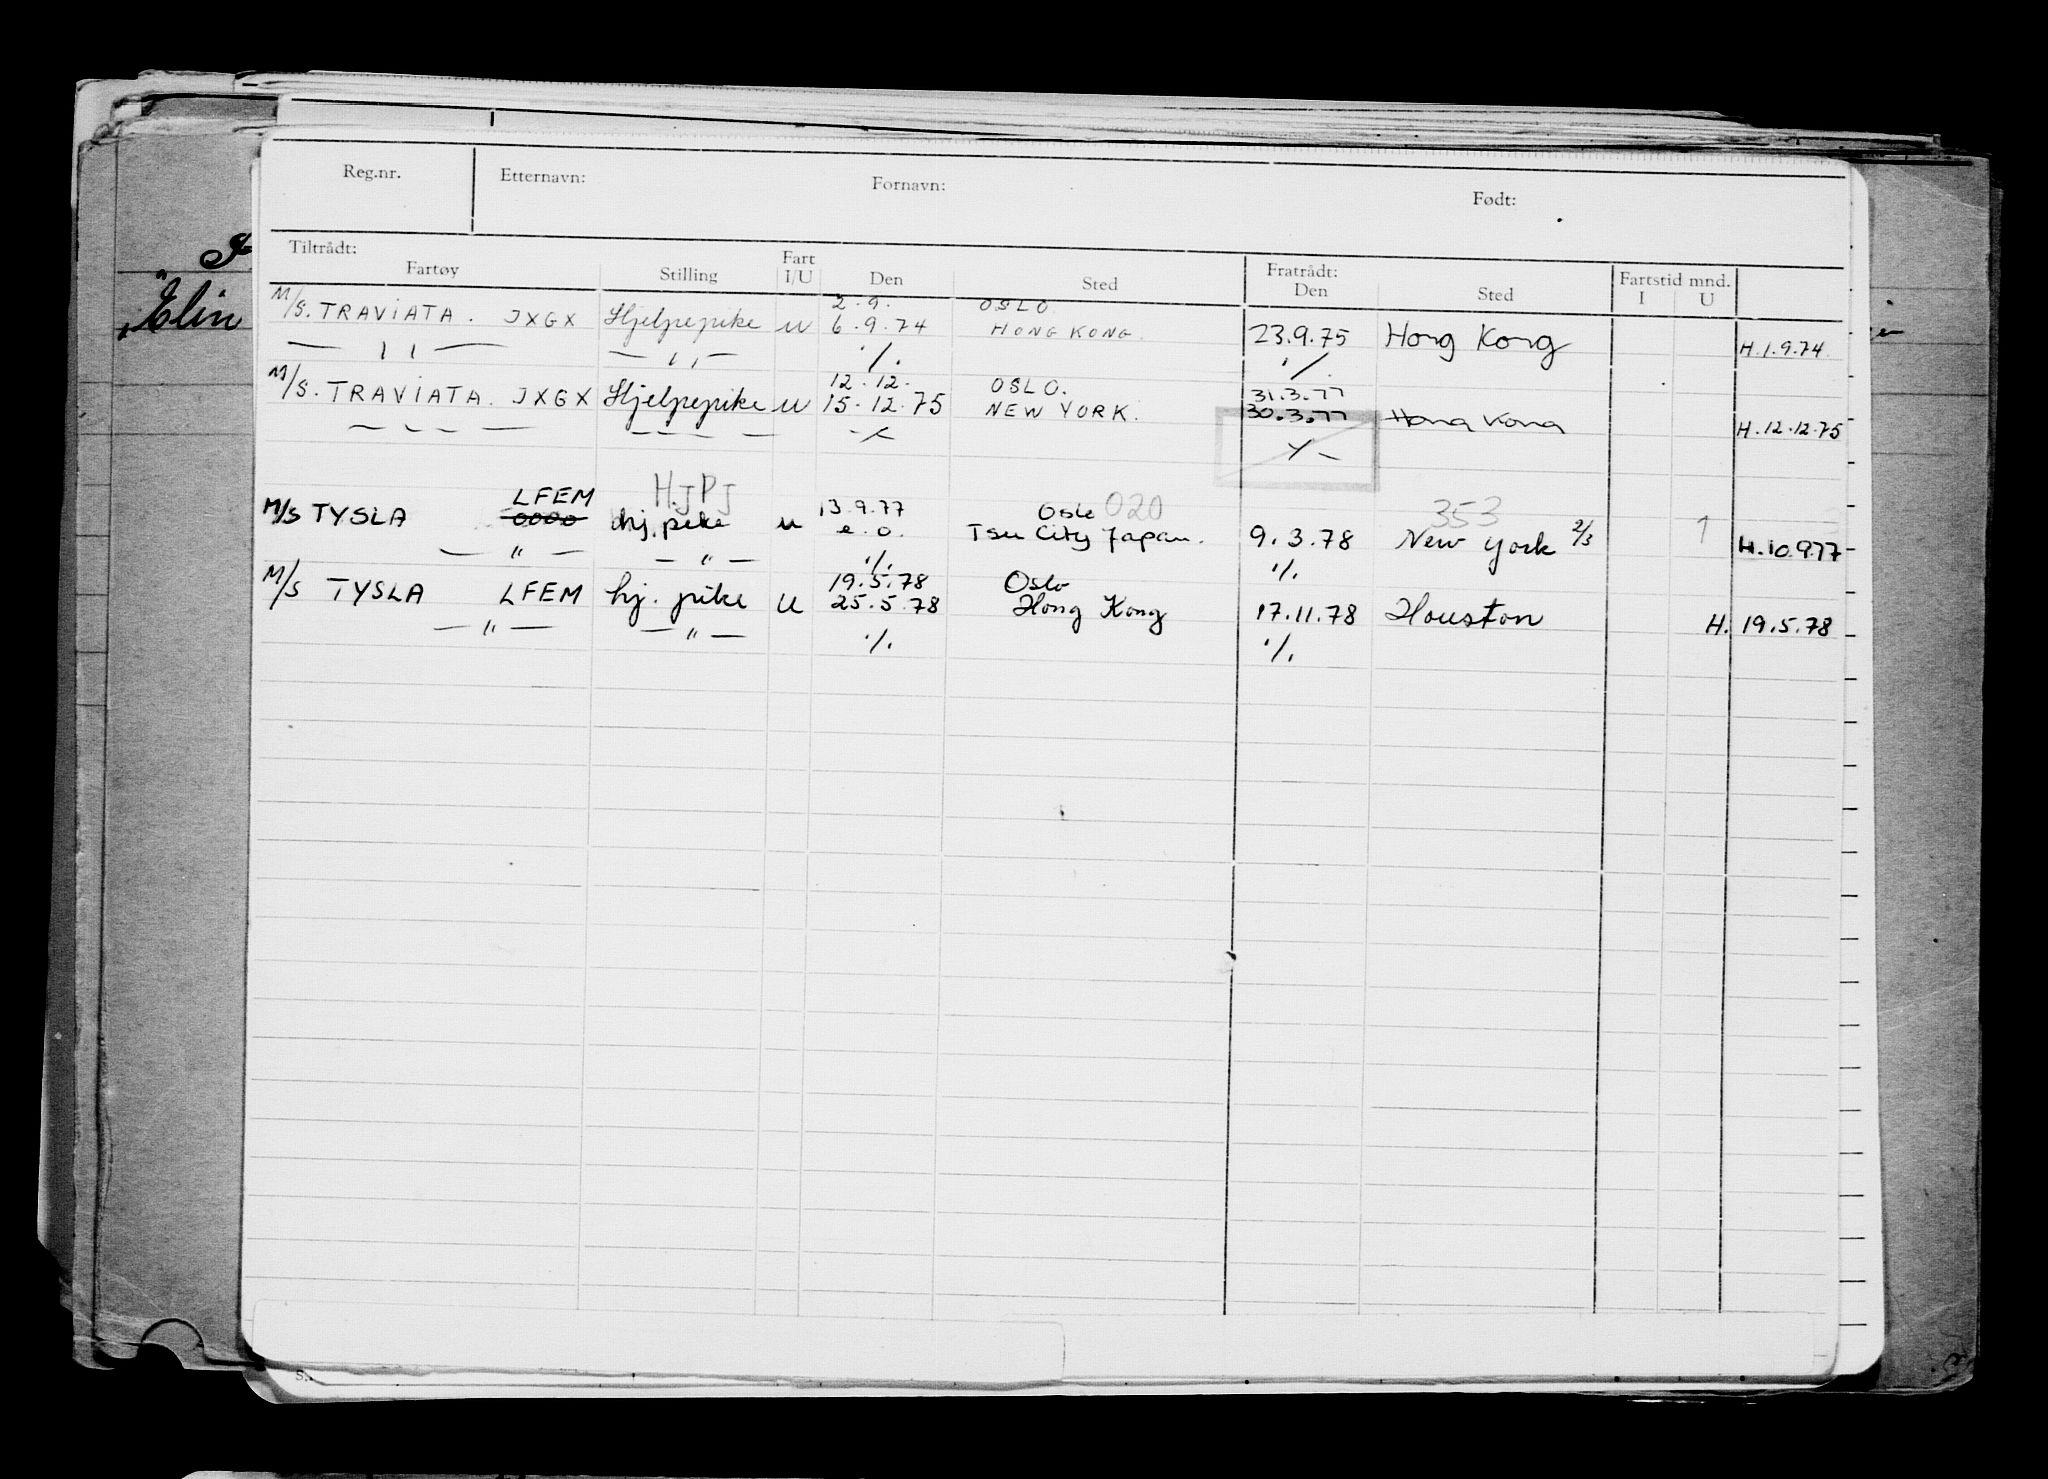 Reg.nr. Etternavn: Fornavn: Født:
Tiltrådt: Fratrådt: Fartstid mnd.
Fartøy Stilling Fart I/U Den Sted Den Sted I U
2.9. OSLO
M/S. TRAVIATA. JXGX Hjelpepike U 6.9.74 HONG KONG. 23.9.75 Hong Kong H.1.9.74.
— ı ı — — ı ı — ·/. ·/.
12.12. OSLO. 31.3.77
M/S. TRAVIATA. JXGX Hjelpepike U 15.12.75 NEW YORK. 30.3.77 Hong Kong H.12.12.75
HJPJ
LFEM 13.9.77 Oslo 020 353
M/S TYSLA 0000 hj. pike u e.o. Tsu City Japan. 9.3.78 New York 2/3 1 H.10.9.77
— " — — " — ·/. ·/.
19.5.78 Oslo
M/S TYSLA LFEM hj. pike U 25.5.78 Hong Kong 17.11.78 Houston H. 19.5.78
— " — — " — ·/. ·/.
"Elin
S.